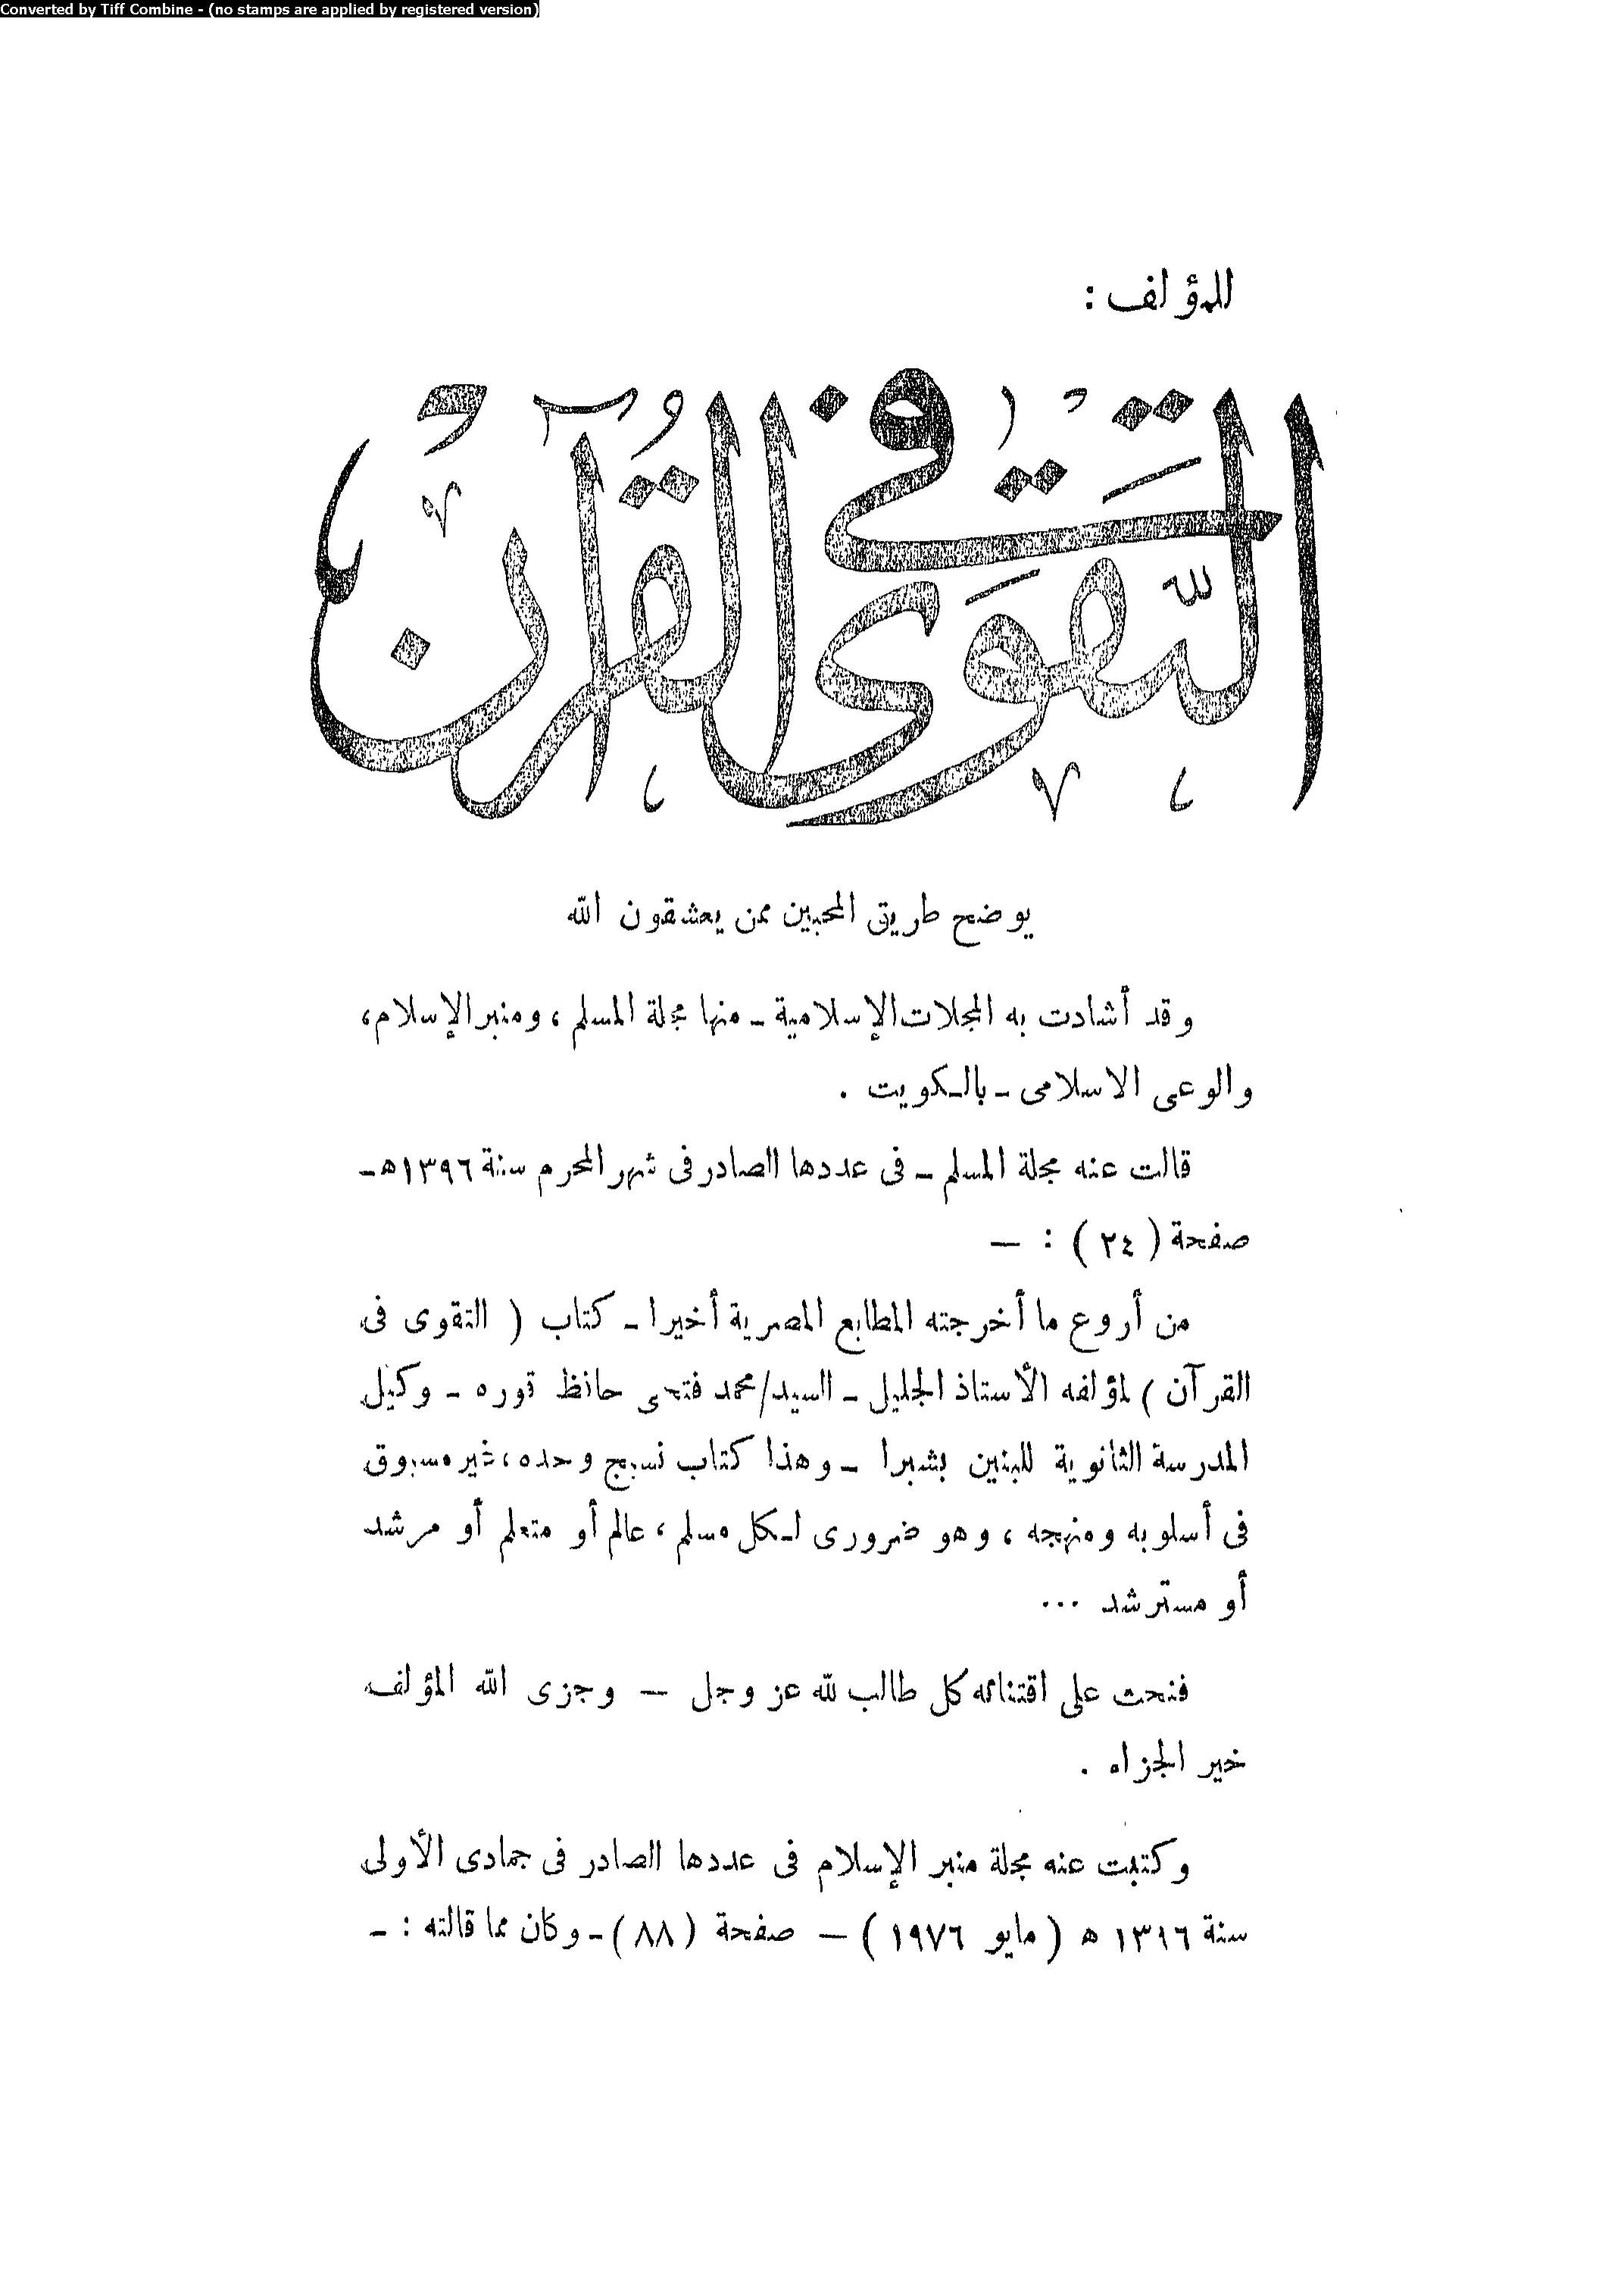 Converted by Tiff Combine - (no stamps are applied by registered version)
للمؤلف :
التقوى فى القرآن
يوضح طريق المحبين ممن يعشقون الله
وقد أشادت به المجلات الإسلامية ــ منها مجلة المسلم ، ومنبر الإسلام،
والوعى الاسلامى ــ بالكويت .
قالت عنه مجلة المسلم ــ فى عددها الصادر فى شهر المحرم سنة ١٣٩٦هـ ــ
صفحة ( ٢٤ ) : ــ
من أروع ما أخرجته المطابع المصرية أخيرا ــ كتاب ( التقوى فى
القرآن ) لمؤلفه الأستاذ الجليل ــ السيد/محمد فتحى حافظ قوره ــ وكيل
المدرسة الثانوية للبنين بشبرا ــ وهذا كتاب نسيج وحده ، غير مسبوق
فى أسلوبه ومنهجه ، وهو ضرورى لكل مسلم ، عالم أو متعلم أو مرشد
أو مسترشد ...
فنحث على اقتنائه كل طالب لله عز وجل ــ وجزى الله المؤلف
خير الجزاء .
وكتبت عنه مجلة منبر الإسلام فى عددها الصادر فى جمادى الأولى
سنة ١٣١٦ هـ ( مايو ١٩٧٦ ) ــ صفحة ( ٨٨ ) ــ وكان مما قالته : ــ